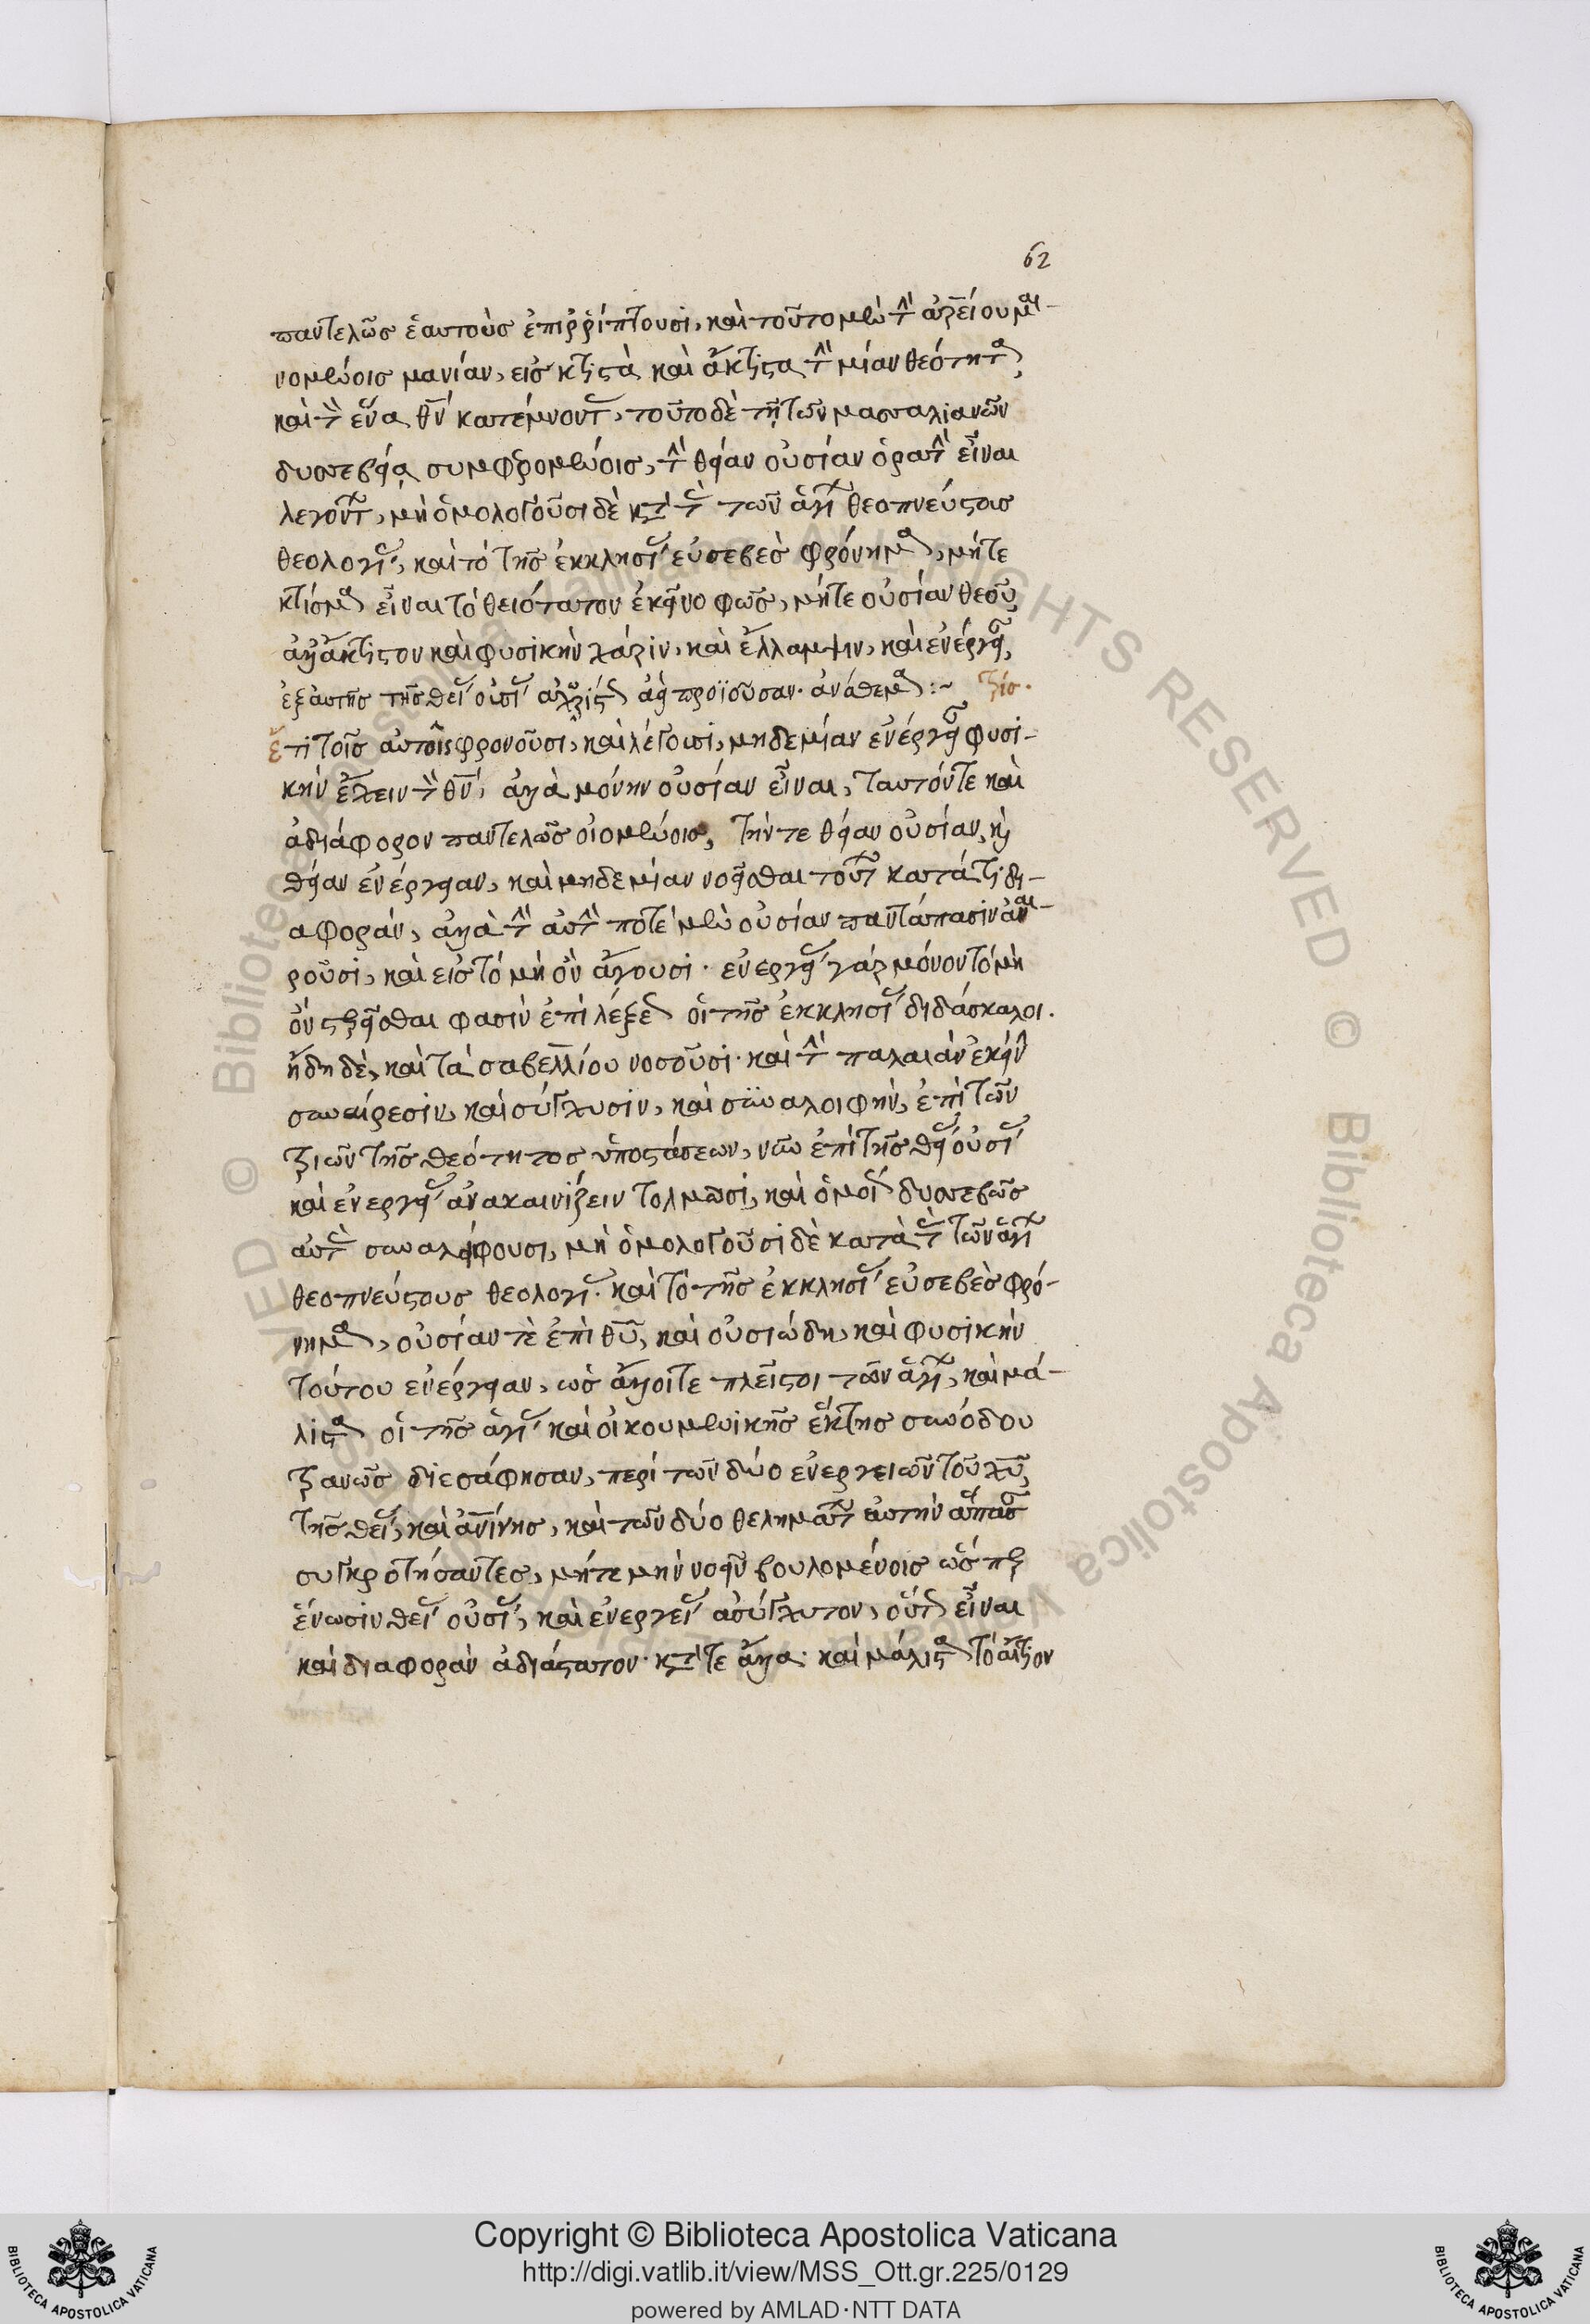 62
παντελῶς ἑαυτοὺς ἐπιῤῥίπτουσι, καὶ τοῦτο μὲν τὴν ἀρείου μαι-
νομένοις μανίαν, εἰς κτιστὰ καὶ ἄκτιστα τὴν μίαν θεότητα,
καὶ τὸν ἕνα θν̅ κατέμνοντ, τοῦτο δὲ τῇ τῶν μασσαλιανῶν
δυσσεβείᾳ συμφερομένοις, τὴν θείαν οὐσίαν ὁρατὴν εἶναι
λέγοντ, μὴ ὁμολογοῦσι δὲ κατὰ τὰς τῶν ἁγίων θεοπνεύστους
θεολογίας, καὶ τὸ τῆς ἐκκλησίας εὐσεβὲς φρόνημα, μήτε
κτίσμα εἶναι τὸ θειότατον ἐκεῖνο φῶς, μήτε οὐσίαν θεοῦ,
ἀλλ' ἄκτιστον καὶ φυσικὴν χάριν, καὶ ἔλλαμψιν, καὶ ἐνέργειαν,
ἐξ αὐτῆς τῆς θείας οὐσίας ἀχωρίστως ἀεὶ προϊοῦσαν. ἀνάθεμα :~ τρίς.
ἔτι τοῖς αὐτοῖς φρονοῦσι, καὶ λέγουσι, μηδεμίαν ἐνέργειαν φυσι-
κὴν ἔχειν τὸν θν̅, ἀλλὰ μόνην οὐσίαν εἶναι, ταυτόν τε καὶ
ἀδιάφορον παντελῶς οἰομένοις, τήν τε θείαν οὐσίαν, καὶ
θείαν ἐνέργειαν, καὶ μηδεμίαν νοεῖσθαι τούτων κατά τι δι-
αφοράν, ἀλλὰ τὴν αὐτὴν ποτὲ μὲν οὐσίαν παντάπασιν ἀναι-
ροῦσι, καὶ εἰς τὸ μὴ ὂν ἄγουσι. ἐνεργείας γὰρ μόνον τὸ μὴ
ὂν στερεῖσθαι φασὶν ἐπὶ λέξεως οἱ τῆς ἐκκλησίας διδάσκαλοι.
ἤδη δὲ, καὶ τὰ σαβελλίου νοσοῦσι. καὶ τὴν παλαιὰν ἐκείνην
συναίρεσιν, καὶ σύγχυσιν, καὶ συναλοιφὴν, ἐπὶ τῶν
τριῶν τῆς θεότητος ὑποστάσεων, νῦν ἐπὶ τῆς θείας οὐσίας
καὶ ἐνεργείας ἀνακαινίζειν τολμῶσι, καὶ ὁμοίως δυσσεβῶς
αὐτὰς συναλείφουσι, μὴ ὁμολογοῦσι δὲ κατὰ τὰς τῶν ἁγίων
θεοπνεύστους θεολογίας. καὶ τὸ τῆς ἐκκλησίας εὐσεβὲς φρό-
νημα, οὐσίαν τὲ ἐπὶ θυ̅, καὶ οὐσιώδη, καὶ φυσικὴν
τούτου ἐνέργειαν, ὡς ἄλλοι τε πλεῖστοι τῶν ἁγίων, καὶ μά-
λιστα οἱ τῆς ἁγίας καὶ οἰκουμενικῆς ἕκτης συνόδου
τρανῶς διεσάφησαν, περὶ τῶν δύο ἐνεργειῶν τοῦ χυ̅,
τῆς θείας, καὶ ἀν̅ίνης, καὶ τῶν δύο θελημάτων αὐτὴν ἅπασαν
συγκροτήσαντες, μήτε μὴν νοεῖν βουλομένοις ὥσπερ
ἕνωσιν θείας οὐσίας, καὶ ἐνεργείας ἀσύγχυτον, οὕτως εἶναι
καὶ διαφορὰν ἀδιάστατον. κατά τε ἄλλα. καὶ μάλιστα τὸ αἴτιον
Copyright © Biblioteca Apostolica Vaticana
http://digi.vatlib.it/view/MSS_Ott.gr.225/0129
powered by AMLAD·NTT DATA